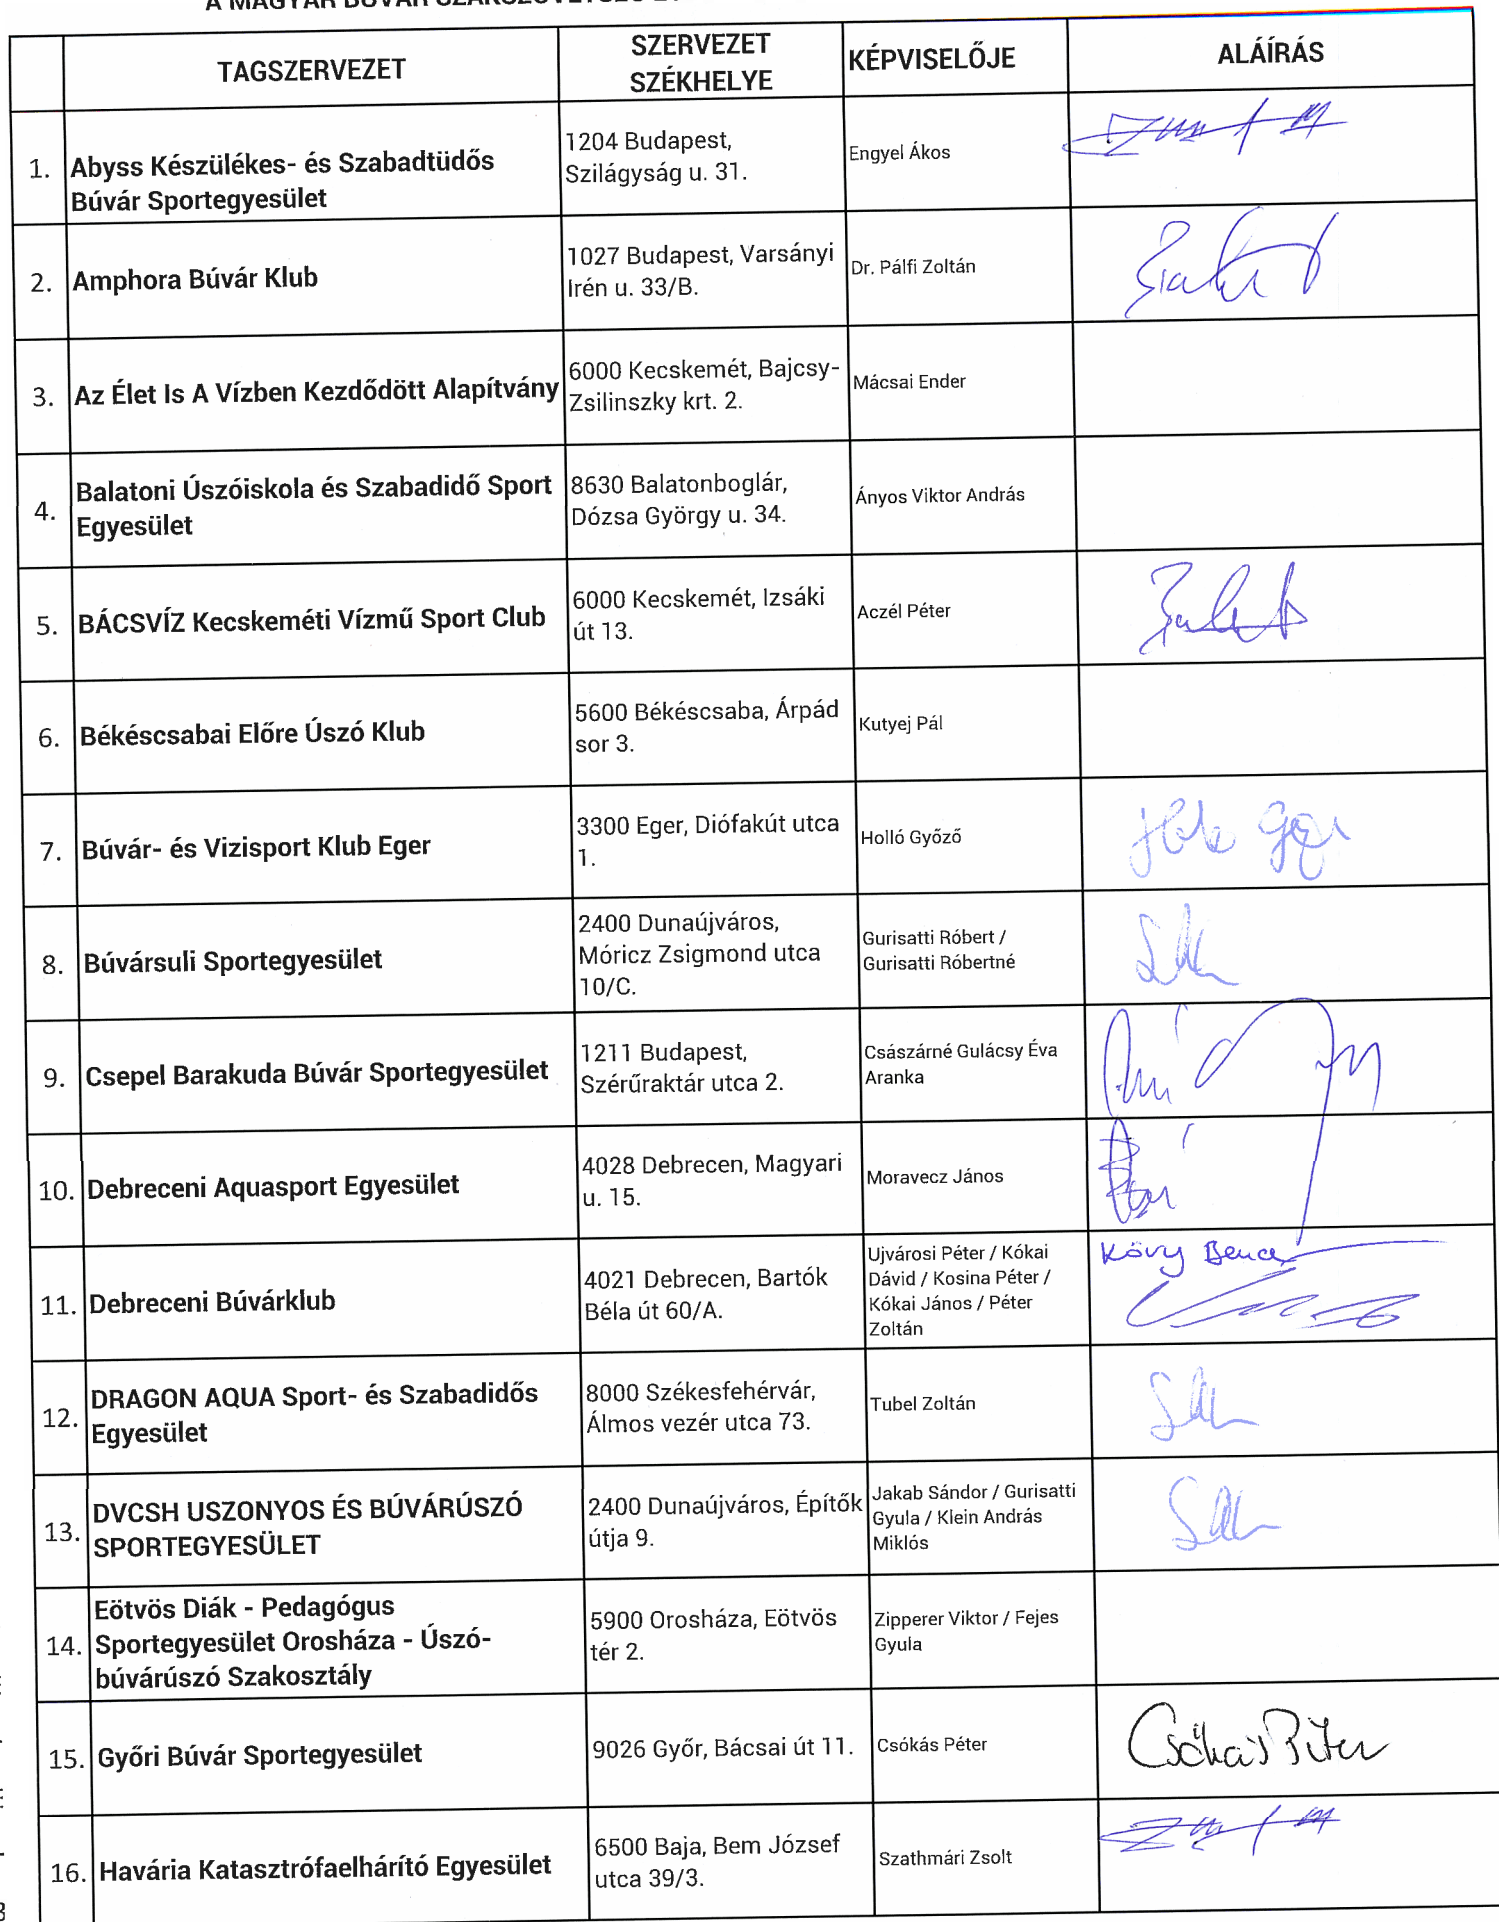 A MAGYAR BÚVÁR SZAKSZÖVETSÉG
TAGSZERVEZET
SZERVEZET
SZÉKHELYE
KÉPVISELŐJE
ALÁÍRÁS
1.
Abyss Készülékes- és Szabadtüdős
Búvár Sportegyesület
1204 Budapest,
Szilágyság u. 31.
Engyel Ákos
2.
Amphora Búvár Klub
1027 Budapest, Varsányi
Irén u. 33/B.
Dr. Pálfi Zoltán
3.
Az Élet Is A Vízben Kezdődött Alapítvány
6000 Kecskemét, Bajcsy-
Zsilinszky krt. 2.
Mácsai Ender
4.
Balatoni Úszóiskola és Szabadidő Sport
Egyesület
8630 Balatonboglár,
Dózsa György u. 34.
Ányos Viktor András
5.
BÁCSVÍZ Kecskeméti Vízmű Sport Club
6000 Kecskemét, Izsáki
út 13.
Aczél Péter
6.
Békéscsabai Előre Úszó Klub
5600 Békéscsaba, Árpád
sor 3.
Kutyej Pál
7.
Búvár- és Vizisport Klub Eger
3300 Eger, Diófakút utca
1.
Holló Győző
8.
Búvársuli Sportegyesület
2400 Dunaújváros,
Móricz Zsigmond utca
10/C.
Gurisatti Róbert /
Gurisatti Róbertné
9.
Csepel Barakuda Búvár Sportegyesület
1211 Budapest,
Szérűraktár utca 2.
Császárné Gulácsy Éva
Aranka
10.
Debreceni Aquasport Egyesület
4028 Debrecen, Magyari
u. 15.
Moravecz János
11.
Debreceni Búvárklub
4021 Debrecen, Bartók
Béla út 60/A.
Ujvárosi Péter / Kókai
Dávid / Kosina Péter /
Kókai János / Péter
Zoltán
Kövy Bence
12.
DRAGON AQUA Sport- és Szabadidős
Egyesület
8000 Székesfehérvár,
Álmos vezér utca 73.
Tubel Zoltán
13.
DVCSH USZONYOS ÉS BÚVÁRÚSZÓ
SPORTEGYESÜLET
2400 Dunaújváros, Építők
útja 9.
Jakab Sándor / Gurisatti
Gyula / Klein András
Miklós
14.
Eötvös Diák - Pedagógus
Sportegyesület Orosháza - Úszó-
búvárúszó Szakosztály
5900 Orosháza, Eötvös
tér 2.
Zipperer Viktor / Fejes
Gyula
15.
Győri Búvár Sportegyesület
9026 Győr, Bácsai út 11.
Csókás Péter
Csókás Péter
16.
Havária Katasztrófaelhárító Egyesület
6500 Baja, Bem József
utca 39/3.
Szathmári Zsolt